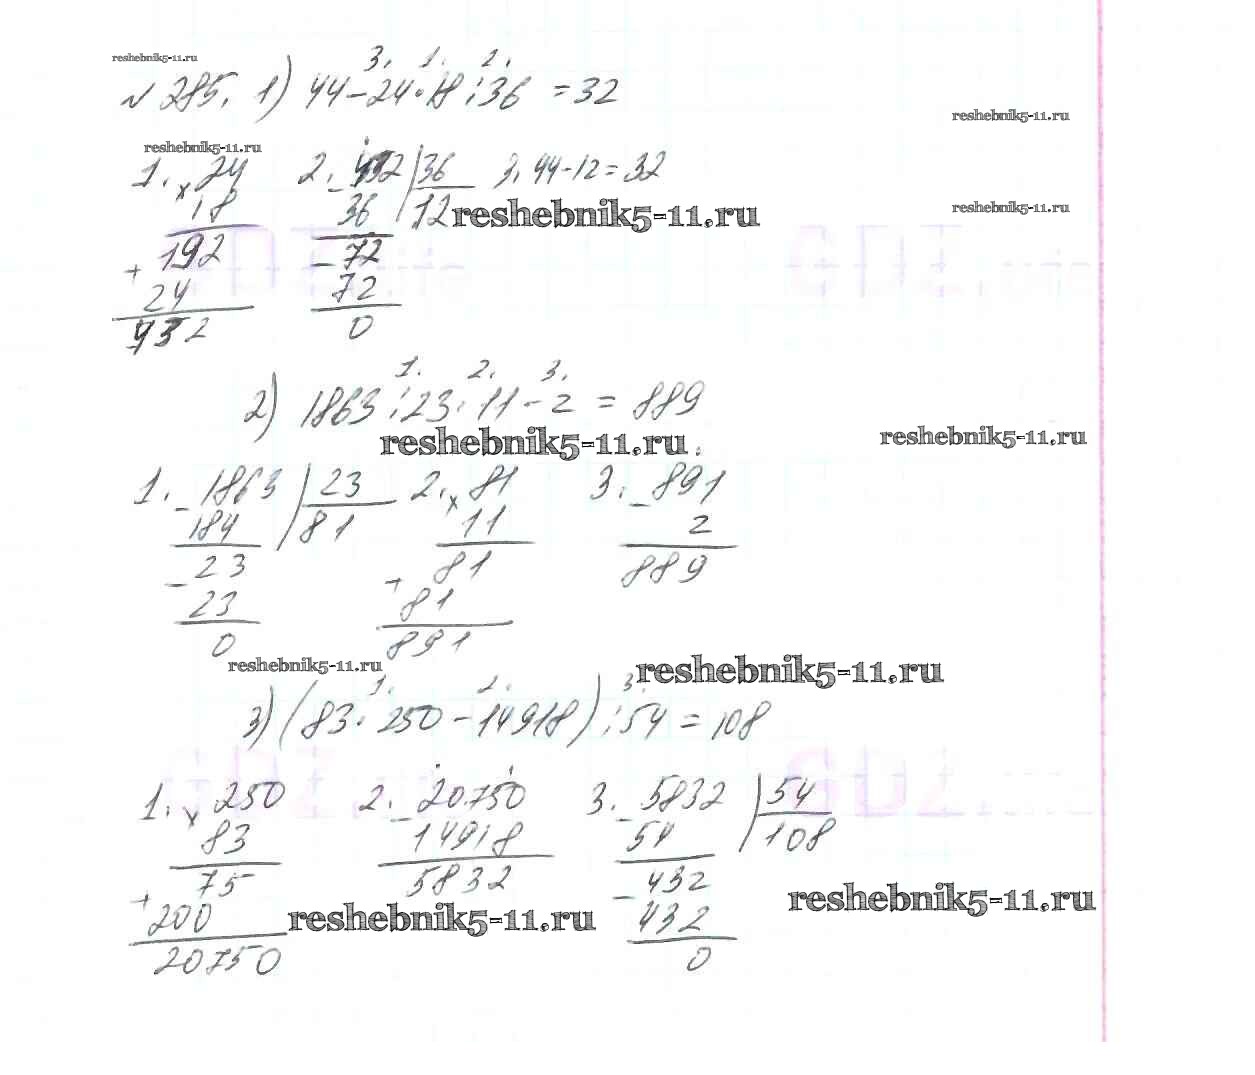 reshebnik5-11.ru
3. 1. 2.
№ 285. 1) 44-24·18:36 = 32
reshebnik5-11.ru
reshebnik5-11.ru
1. × 24 2. - 432 | 36 3. 44-12=32
18 36 12 reshebnik5-11.ru
reshebnik5-11.ru
192 - 72
+ 24 72
432 0
1. 2. 3.
2) 1863:23·11-2 = 889
reshebnik5-11.ru
reshebnik5-11.ru
1. - 1863 | 23 2. × 81 3. - 891
184 81 11 2
- 23 81 889
23 + 81
0 891
reshebnik5-11.ru
reshebnik5-11.ru
1. 2. 3.
3) (83·250-14918):54 = 108
1. × 250 2. - 20750 3. - 5832 | 54
83 14918 54 108
75 5832 - 432
+ 200 reshebnik5-11.ru 432 reshebnik5-11.ru
20750 0